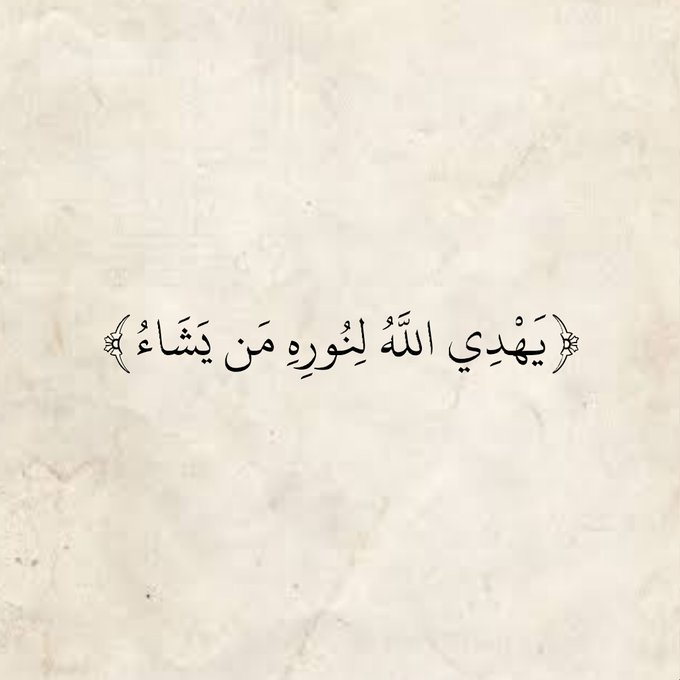 ﴿يَهْدِي اللَّهُ لِنُورِهِ مَن يَشَاءُ﴾